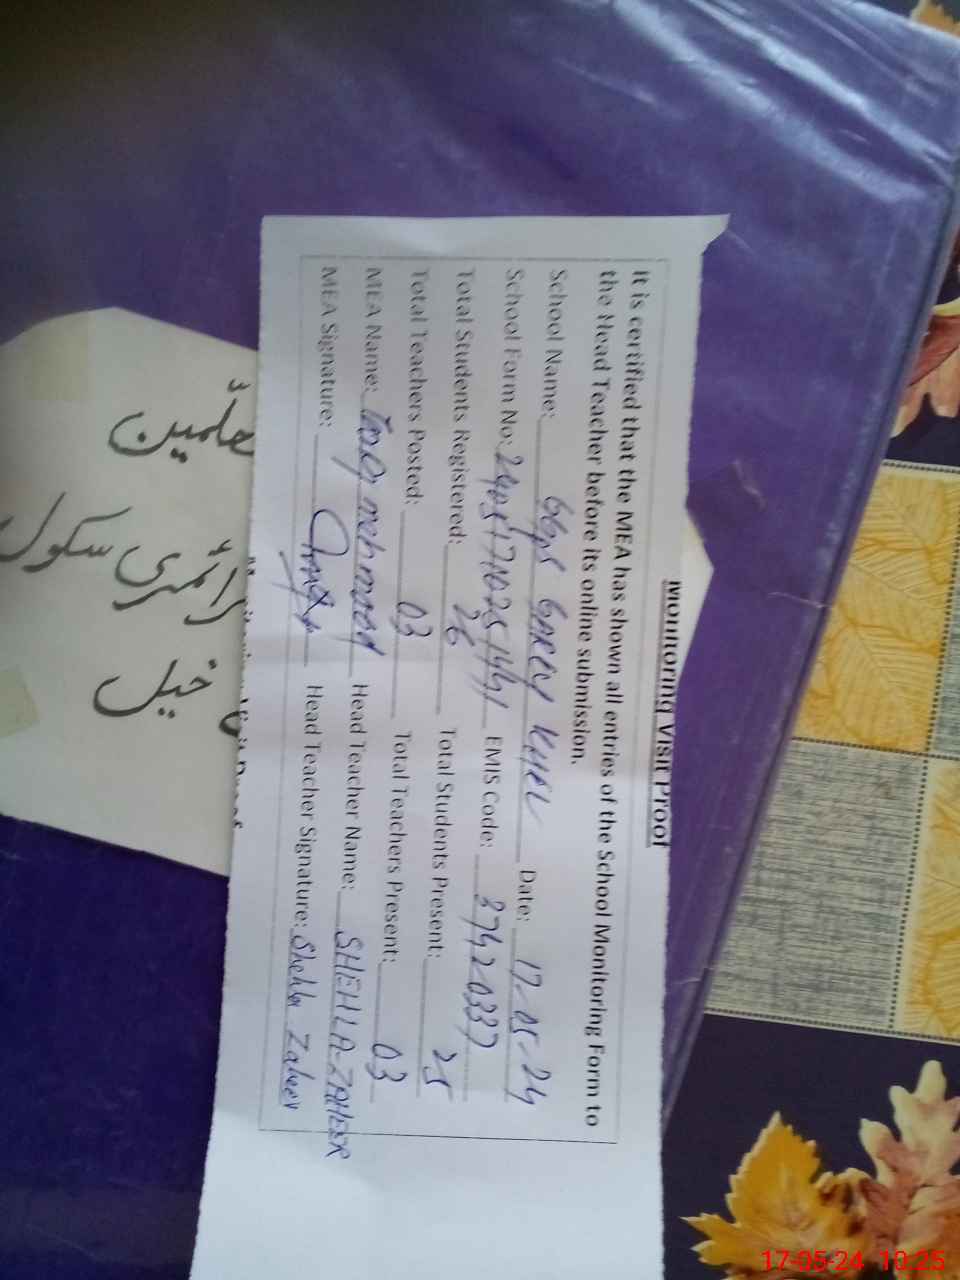 Monitoring Visit Proof
It is certified that the MEA has shown all entries of the School Monitoring Form to
the Head Teacher before its online submission.
School Name: GGPS GAREEY KHEL Date: 17-05-24
School Form No: EMIS Code: 37420337
Total Students Registered: 26 Total Students Present: 25
Total Teachers Posted: 03 Total Teachers Present: 03
MEA Name: Tariq mehmood Head Teacher Name: SHEHLA-ZAHEER
MEA Signature: Head Teacher Signature: Shehla Zaheer
معلمین
پرائمری سکول
خیل
17-05-24 10:25